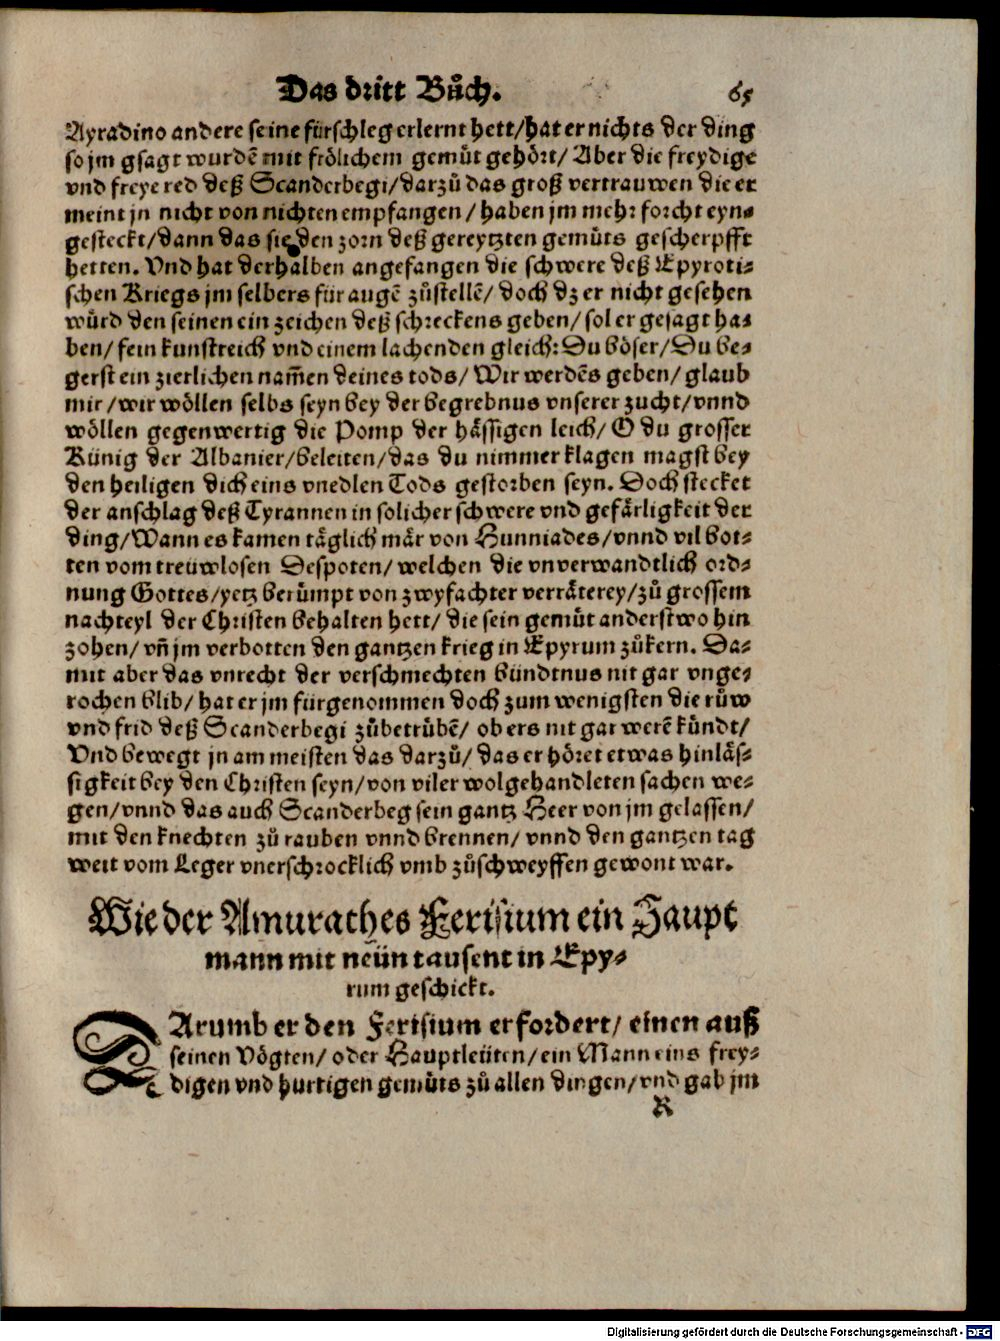 Das dritt Bůch. 65
Ayradino andere seine fürschleg erlernt hett/hat er nichts der ding
so jm gsagt wurdẽ mit frölichem gemüt gehört/ Aber die freydige
vnd freye red deß Scanderbegi/darzů das groß vertrauwen die er
meint jn nicht von nichten empfangen/haben jm mehr forcht eyn-
gesteckt/dann das sie den zorn deß gereytzten gemüts gescherpfft
hetten. Vnd hat derhalben angefangen die schwere deß Epyroti-
schen Kriegs jm selbers für augẽ zůstellẽ/ doch dz er nicht gesehen
würd den seinen ein zeichen deß schreckens geben/ sol er gesagt ha-
ben/ fein kunstreich vnd einem lachenden gleich: Du böser/Du be-
gerst ein zierlichen nam̃en deines tods/ Wir werdẽs geben/ glaub
mir/wir wöllen selbs seyn bey der begrebnus vnserer zucht/vnnd
wöllen gegenwertig die Pomp der hässigen leich/ O du grosser
Künig der Albanier/beleiten/das du nimmer klagen magst bey
den heiligen dich eins vnedlen Tods gestorben seyn. Doch stecket
der anschlag deß Tyrannen in solicher schwere vnd gefärligkeit der
ding/Wann es kamen täglich mär von Hunniades/vnnd vil bot-
ten vom treüwlosen Despoten/welchen die vnverwandtlich ord-
nung Gottes/yetz berümpt von zwyfachter verräterey/zů grossem
nachteyl der Christen behalten hett/ die sein gemüt anderstwo hin
zohen/ vñ jm verbotten den gantzen krieg in Epyrum zůkern. Da-
mit aber das vnrecht der verschmechten bündtnus nit gar vnge-
rochen blib/ hat er jm fürgenommen doch zum wenigsten die růw
vnd frid deß Scanderbegi zůbetrübẽ/ ob ers nit gar werẽ kündt/
Vnd bewegt jn am meisten das darzů/ das er höret etwas hinläs-
sigkeit bey den Christen seyn/von viler wolgehandleten sachen we-
gen/vnnd das auch Scanderbeg sein gantz Heer von jm gelassen/
mit den knechten zů rauben vnnd brennen/ vnnd den gantzen tag
weit vom Leger vnerschrocklich vmb zůschweyffen gewont war.
Wie der Amurathes Ferisium ein Haupt
mann mit neün tausent in Epy-
rum geschickt.
DArumb er den Ferisium erfordert/ einen auß
seinen Vögten/ oder Hauptleüten/ein Mann eins frey-
digen vnd hurtigen gemüts zů allen dingen/vnd gab jm
K
Digitalisierung gefördert durch die Deutsche Forschungsgemeinschaft - DFG